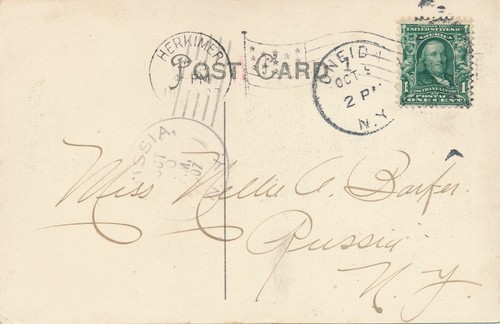 HERKIMER
POST CARD
ONEIDA
OCT
2 PM
N.Y.
UNITED STATES
1
POSTAGE
ONE CENT
SSIA,
07
Miss Nellie A. Barker
Russia
N.Y.